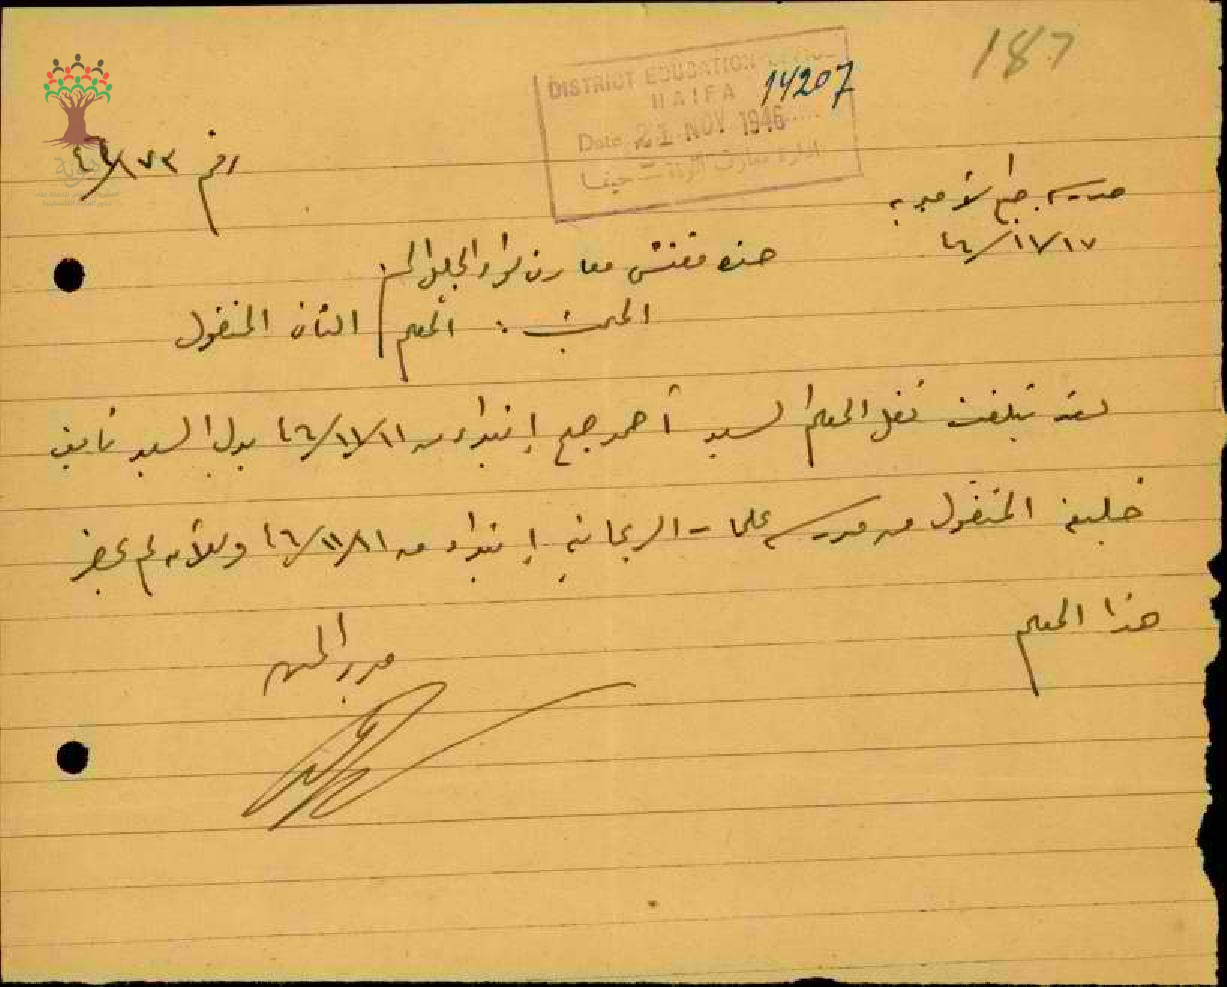 187
DISTRICT EDUCATION OFFICE
HAIFA 14207
Date 21 NOV 1946
ادارة معارف اللواء حيفا
رقم ٤٦/١٧٣
مدرسة الأميرية
٤٦/١١/١٧
حضرة مفتش معارف لواء الجليل المحترم
المبحث : المعلم الثاني المنقول
لقد تبلغت نقل المعلم السيد أحمد إبتداء من ٤٦/١١/١١ بدل السيد نايف
خليفة المنقول من مدرسة علمات الريحانية إبتداء من ٤٦/١١/١١ وللآن لم يحضر
هذا المعلم
مدير المدرسة